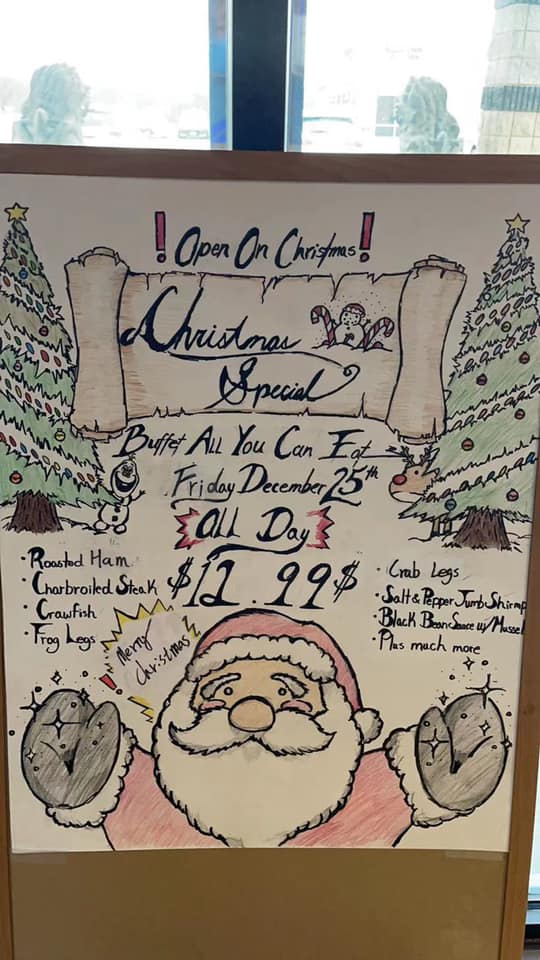 ! Open On Christmas !
Christmas
Special
Buffet All You Can Eat
Friday December 25th
All Day
$12.99$
• Roasted Ham
• Charbroiled Steak
• Crawfish
• Frog Legs
Merry
Christmas
!
• Crab Legs
• Salt & Pepper Jumb Shrimp
• Black Bean Sauce w/ Mussel
• Plus much more